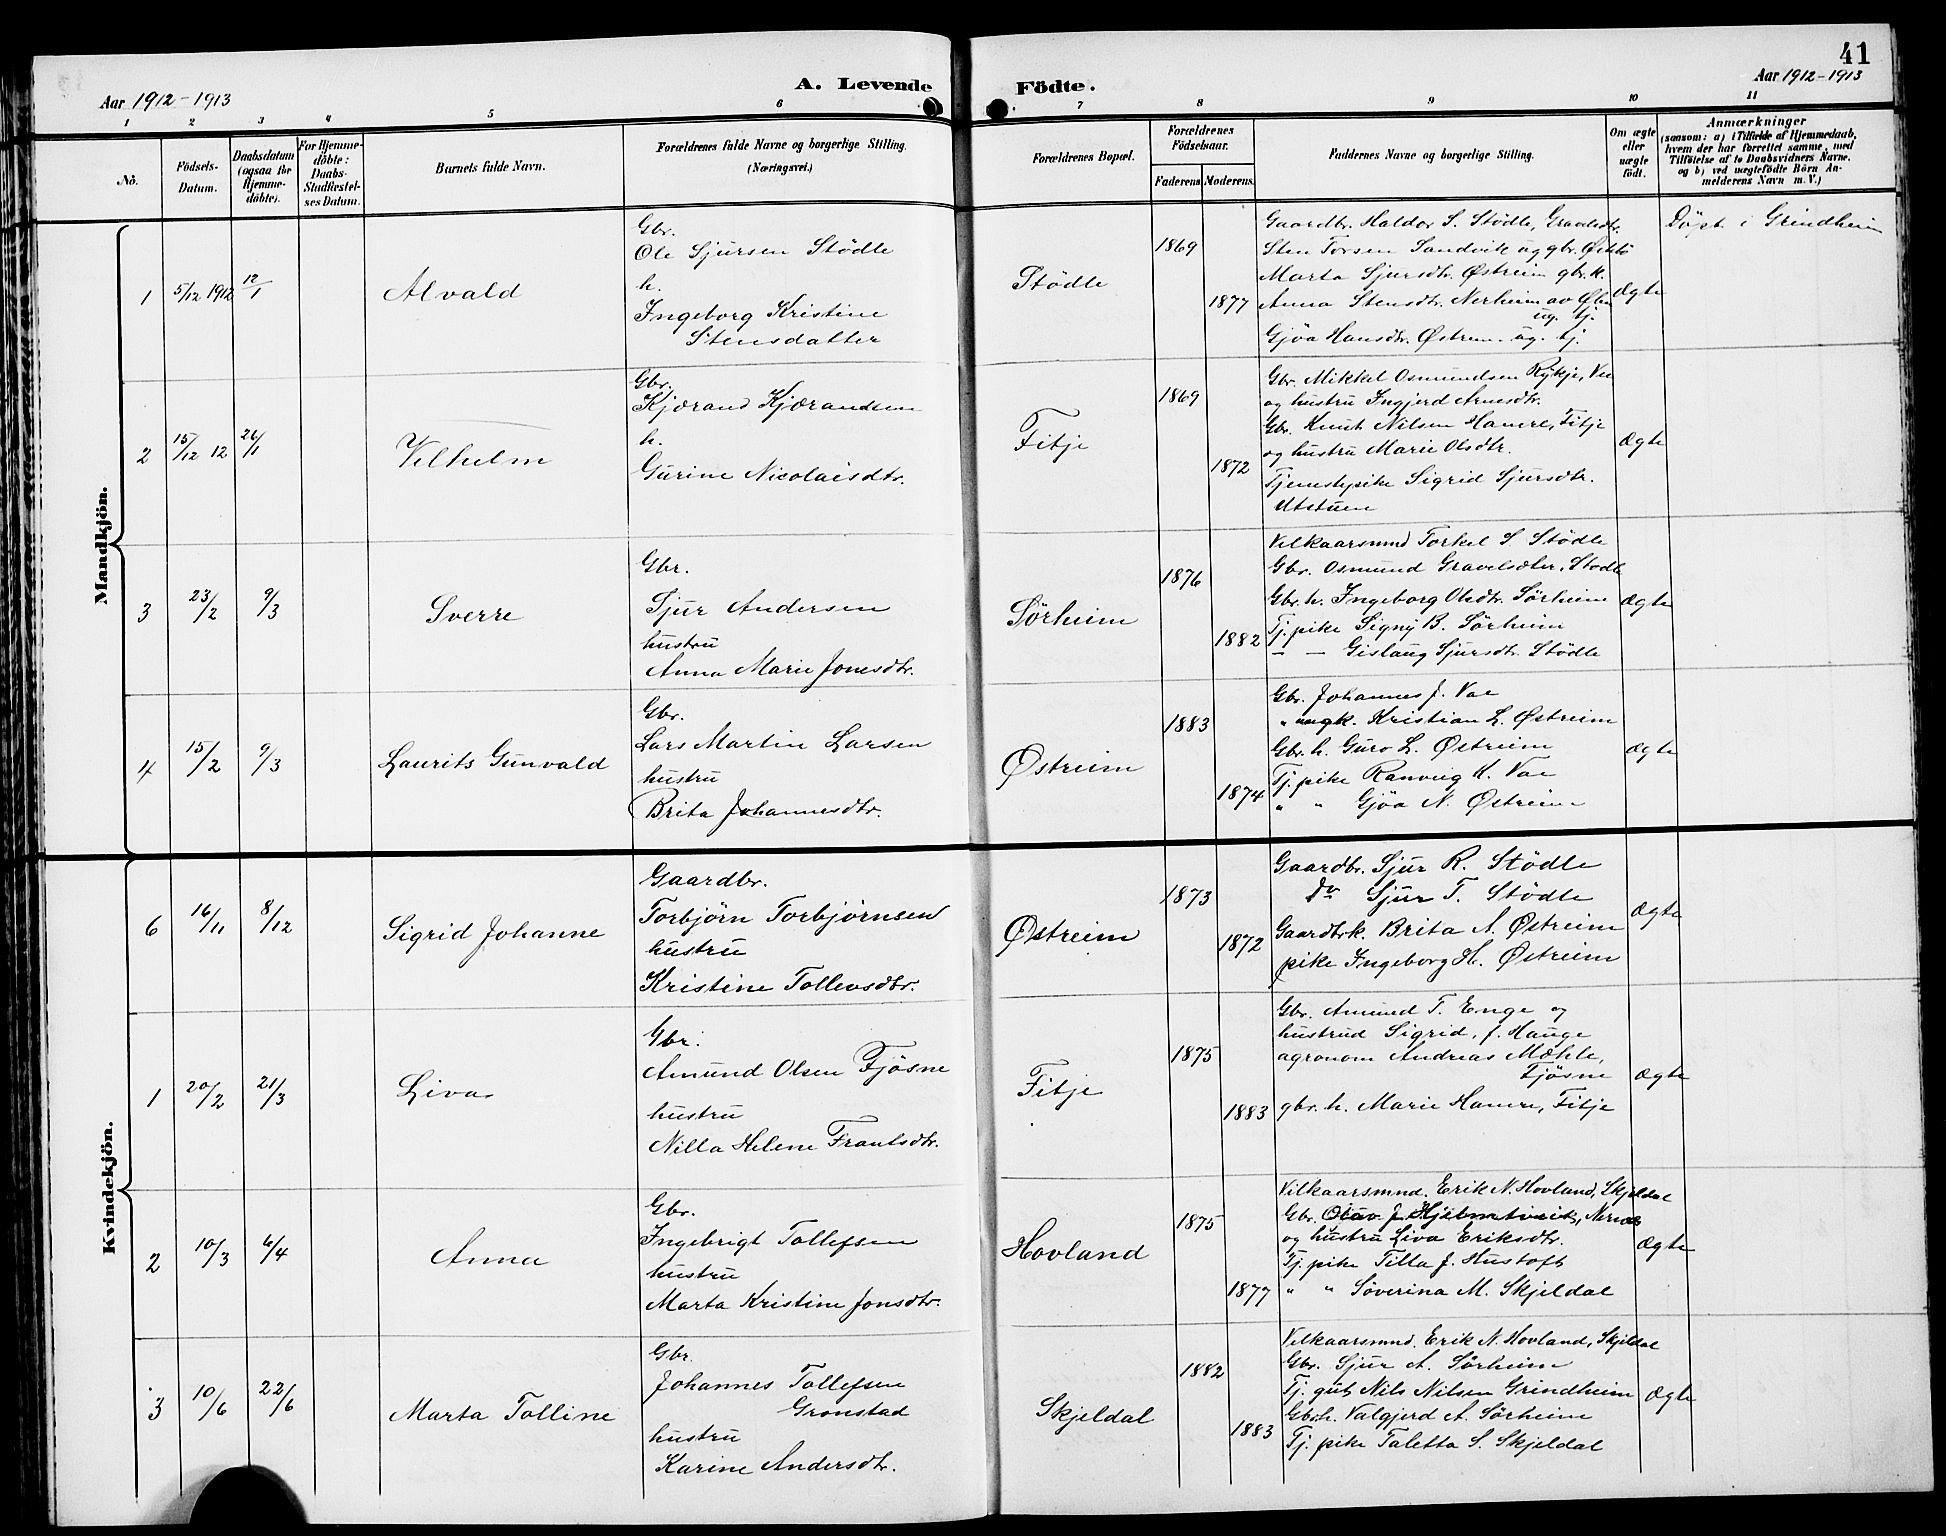 41
Aar 1912-1913
A. Levende
Födte.
Aar 1912-1913
1 2 3 4 5 6 7 8 9 10 11
Nö.
Födsels-
Datum.
Daabsdatum
(ogsaa for
Hjemme-
döbte).
For Hjemme-
döbte:
Daabs-
Stadfæstel-
ses Datum.
Barnets fulde Navn.
Forældrenes fulde Navne og borgerlige Stilling.
(Næringsvei.)
Forældrenes Bopæl.
Forældrenes
Födselsaar.
Faderens. Moderens.
Faddernes Navne og borgerlige Stilling.
Om ægte
eller
uægte
födt.
Anmærkninger
(saasom: a) i Tilfælde af Hjemmedaab,
hvem der har forrettet samme, med
Tilföielse af to Daabsvidners Navne.
og b) ved uægtefödte Börn An-
melderens Navn m. V.)
Mandkjön.
1 5/12 1912 12/1 Alvald
Gbr.
Ole Sjursen Stödle
h.
Ingeborg Kristine
Stensdatter
Stödle 1869 1877
Gaardbr. Haldor S. Stödle,
Sten Torsen Sandvik og gbr.
Marta Sjursdtr. Østreim gbr.k.
Anna Stensdtr. Nerheim av Ølen
ug. tj.
Gjöa Hansdtr. Østreim. ug. tj.
Ægte
Döpt i Grindheim
2 15/12 12 26/1 Vilhelm
Gbr.
Kjærand Kjærandsen
h.
Gurine Nicolaisdtr.
Fitje 1869 1872
Gbr. Mikkel Osmundsen Rykje, Vae
og hustru Ingjerd Arnesdtr.
Gbr. Knut Nilsen Hamre, Fitje
og hustru Marie Olsdtr.
Tjenestepike Sigrid Sjursdtr.
Utstuen
Ægte
3 23/2 9/3 Sverre
Gbr.
Sjur Andersen
hustru
Anna Marie Jonesdtr.
Sörheim 1876 1882
Vilkaarsmnd Torkel S Stödle
Gbr. Osmund Stödle
Gbr. h. Ingeborg Olsdtr. Sörheim
Tj. pike Signy B. Sörheim
— — Gislaug Sjursdtr. Stödle
Ægte
4 15/2 9/3 Laurits Gunvald
Gbr.
Lars Martin Larsen
hustru
Brita Johannesdtr.
Østreim 1883 1874
Gbr. Johannes J. Vae
" ungk. Kristian L. Østreim
Gbr. h. Guro L. Østreim
Tj. pike Ranveig K. Vae
" " Gjöa N. Østreim
Ægte
Kvindekjön.
6 16/11 8/12 Sigrid Johanne
Gaardbr.
Torbjörn Torbjörnsen
hustru
Kristine Tollevsdtr.
Østreim 1873 1872
Gaardbr. Sjur R. Stödle
Do Sjur T. Stödle
Gaardbrk. Brita A. Østreim
pike Ingeborg H. Østreim
Ægte
1 20/2 21/3 Liva
Gbr.
Amund Olsen Tjösne
hustru
Nilla Helene Frantsdtr.
Fitje 1875 1883
Gbr. Amund T. Enge og
hustrud Sigrid, J. Hauge
agronom Andreas Mæhle,
Tjösne
gbr. h. Marie Hamre, Fitje
Ægte
2 10/3 6/4 Anna
Gbr.
Ingebrigt Tollefsen
hustru
Marta Kristine Jonsdtr.
Hovland 1875 1877
Vilkaarsmnd. Erik N. Hovland, Skjeldal
Gbr. Olav J. Hjelmtveit, Nernes
og hustru Liva Eriksdtr.
Tj. pike Tilla J. Hustoft
" " Söverina M. Skjeldal
Ægte
3 10/6 22/6 Marta Tolline
Gbr.
Johannes Tollefsen
Grönstad
hustru
Karine Andersdtr.
Skjeldal 1882 1883
Vilkaarsmnd. Erik N. Hovland, Skjeldal
Gbr. Sjur A. Sörheim
Tj. gut Nils Nilsen Grindheim
Gbr.h. Valgjerd A. Sörheim
Tj. pike Taletta S. Skjeldal
Ægte